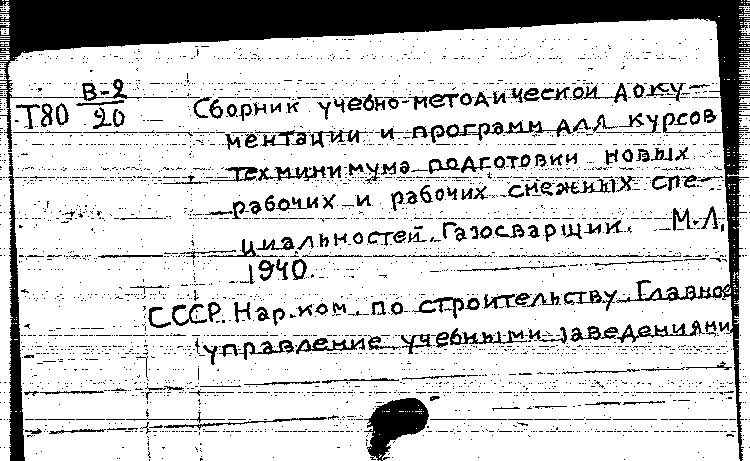 Т80 В-2/20
Сборник учебно-методической доку-
ментации и программ для курсов
техминимума подготовки новых
рабочих и рабочих смежных спе-
циальностей. Газосварщики. М.-Л.
1940.
СССР. Нар.ком. по строительству. Главное
управление учебными заведениями